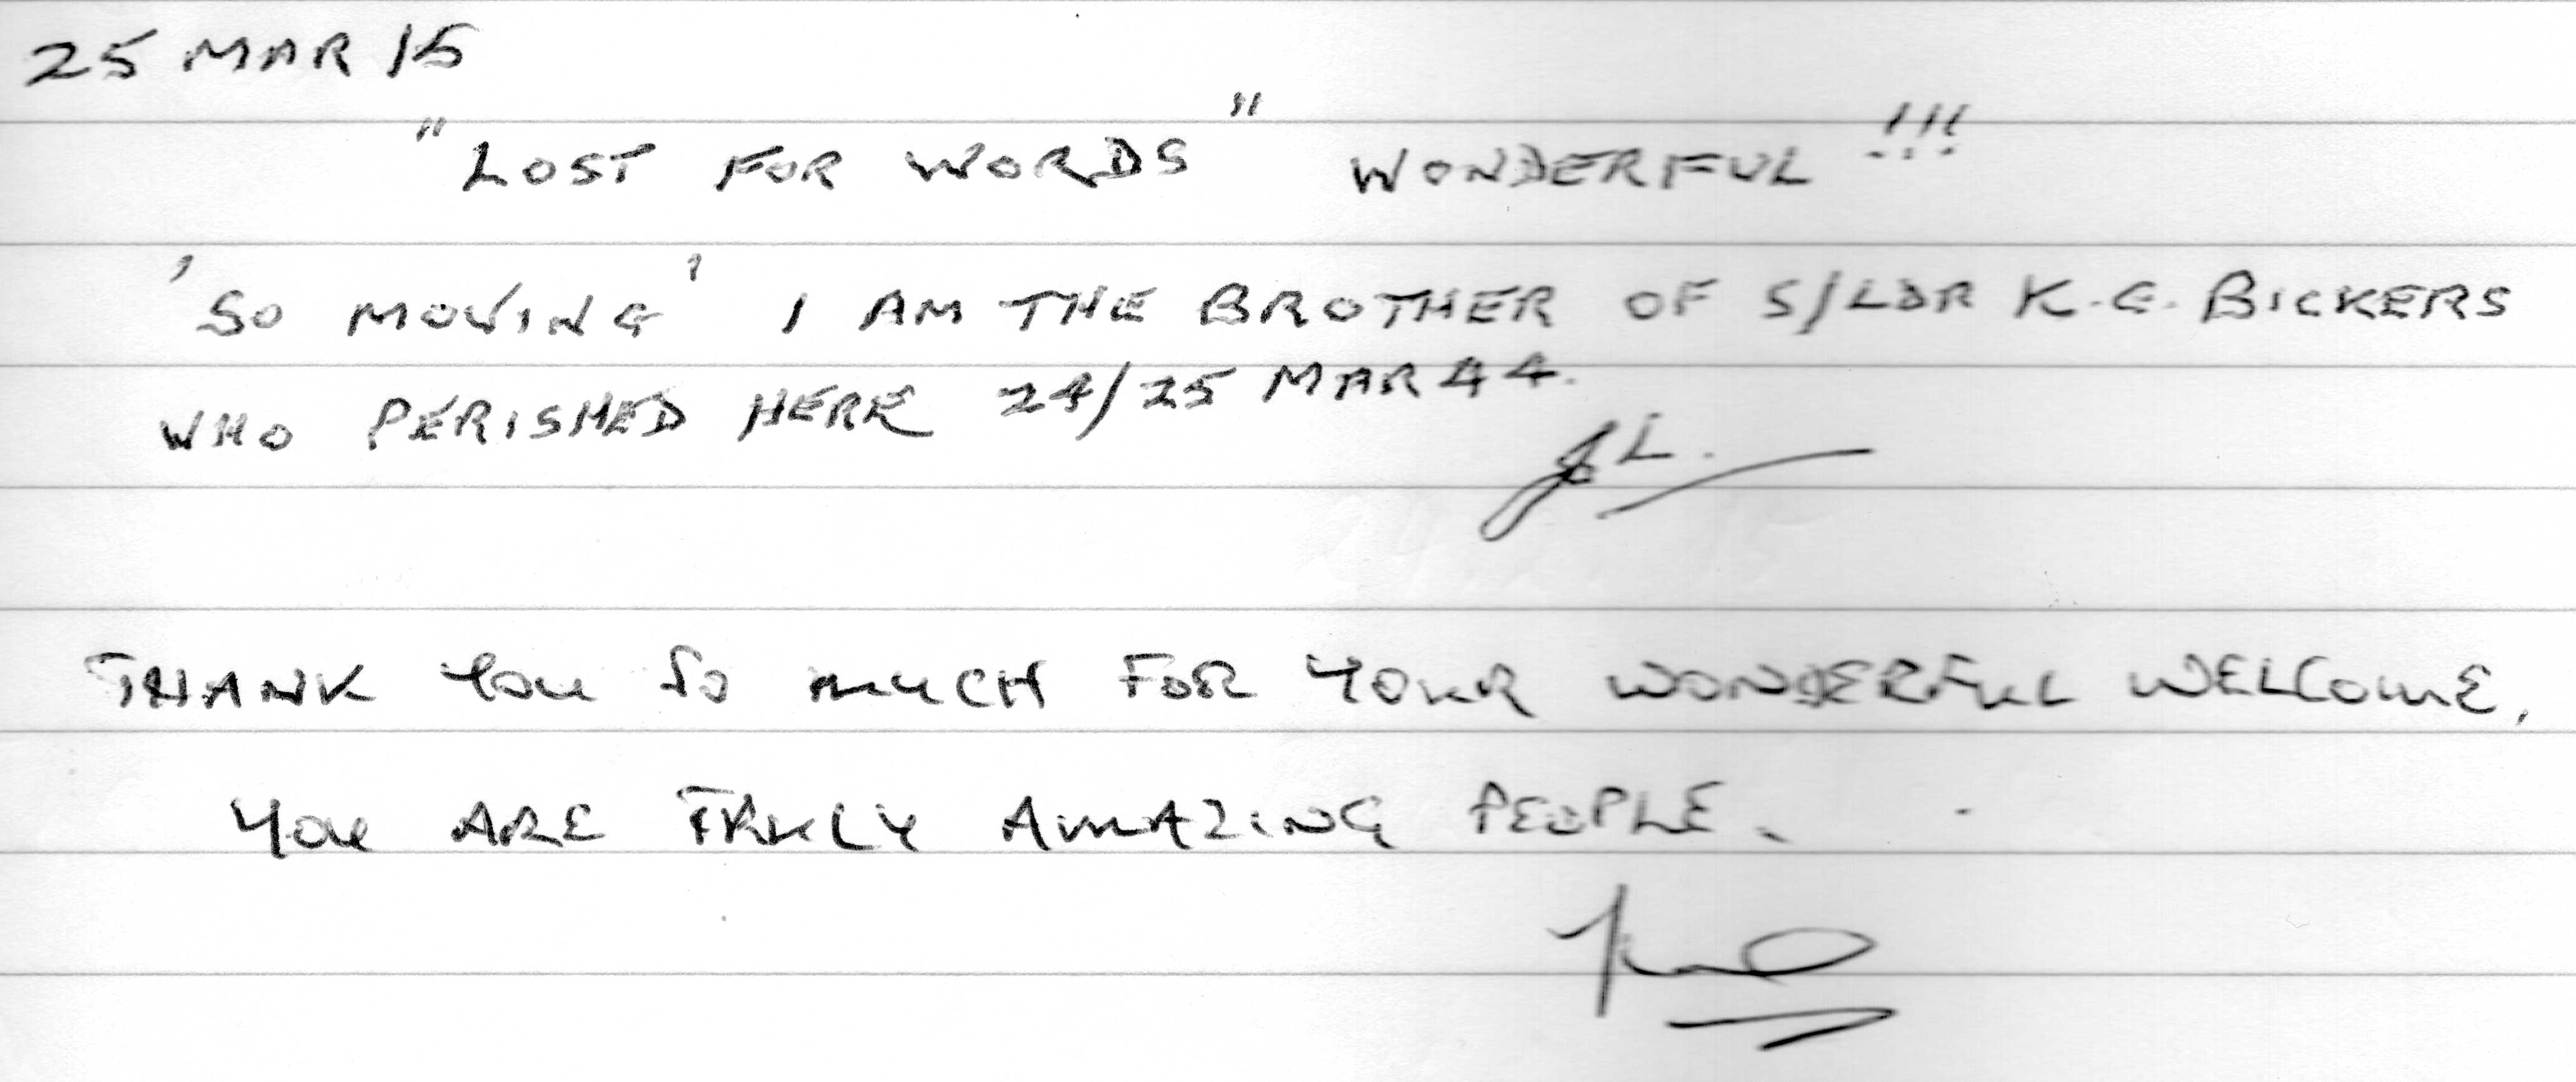 25 MAR 15
"LOST FOR WORDS" WONDERFUL!!!
'SO MOVING' I AM THE BROTHER OF S/LDR K.G. BICKERS
WHO PERISHED HERE 24/25 MAR 44.
THANK YOU SO MUCH FOR YOUR WONDERFUL WELCOME,
YOU ARE TRULY AMAZING PEOPLE.